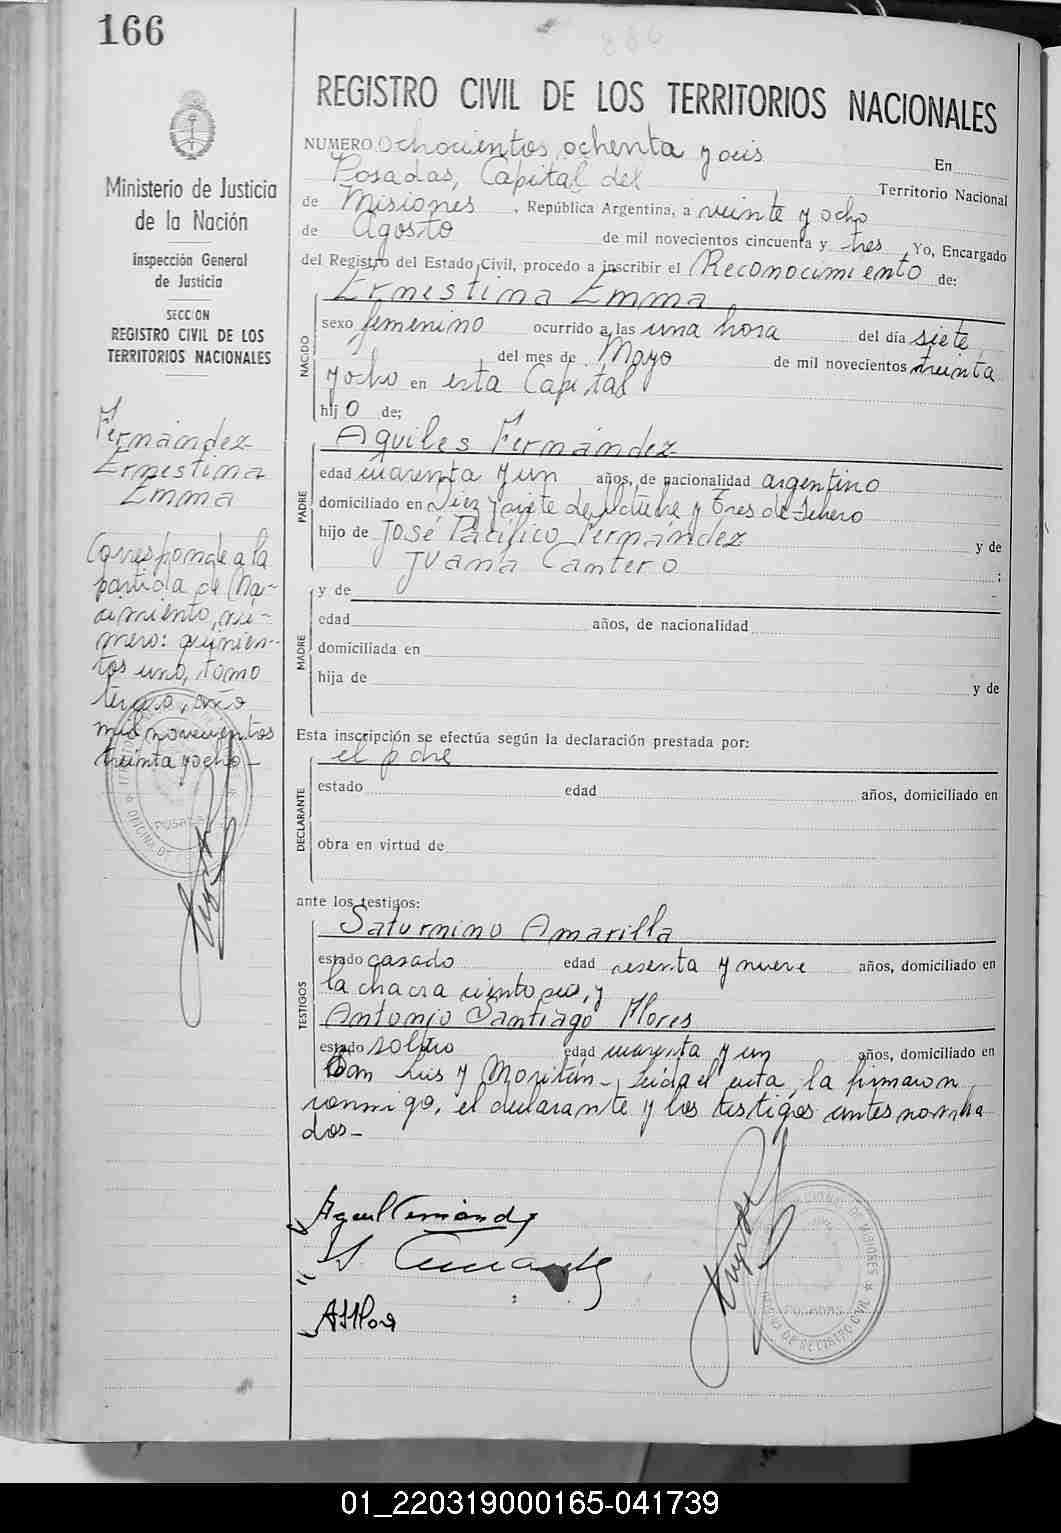 166
REGISTRO CIVIL DE LOS TERRITORIOS NACIONALES
Ministerio de Justicia
de la Nación
Inspección General
de Justicia
SECCION
REGISTRO CIVIL DE LOS
TERRITORIOS NACIONALES
Fernández
Ernestina
Emma
Corresponde a la
partida de Na-
cimiento, nú-
mero: quinien-
tos uno, tomo
tercero, año
mil novecientos
treinta y ocho-
NUMERO ochocientos ochenta y seis En
Posadas, Capital del Territorio Nacional
de Misiones, República Argentina, a veinte y ocho
de Agosto de mil novecientos cincuenta y tres, Yo, Encargado
del Registro del Estado Civil, procedo a inscribir el Reconocimiento de:
NACIDO
Ernestina Emma
sexo femenino ocurrido a las una hora del día siete
del mes de Mayo de mil novecientos treinta
y ocho en esta Capital
hij o de;
PADRE
Aquiles Fernández
edad cuarenta y un años, de nacionalidad argentino
domiciliado en Diez y siete de Octubre y Tres de Febrero
hijo de José Pacífico Fernández y de
Juana Cantero ;
MADRE
y de
edad años, de nacionalidad
domiciliada en
hija de y de
Esta inscripción se efectúa según la declaración prestada por:
el pdre
DECLARANTE
estado edad años, domiciliado en
obra en virtud de
ante los testigos:
TESTIGOS
Saturnino Amarilla
estado casado edad sesenta y nueve años, domiciliado en
la chacra ciento seis, y
Antonio Santiago Flores
estado soltero edad cuarenta y un años, domiciliado en
San Luis y - Leída el acta, la firmaron
conmigo, el declarante y los testigos antes nombra
dos-
POSADAS
01_220319000165-041739